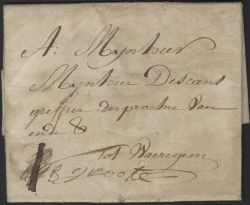 A: Mynheer
Mynheer Descans
greffier der prochie van
ende &
tot Waeregem